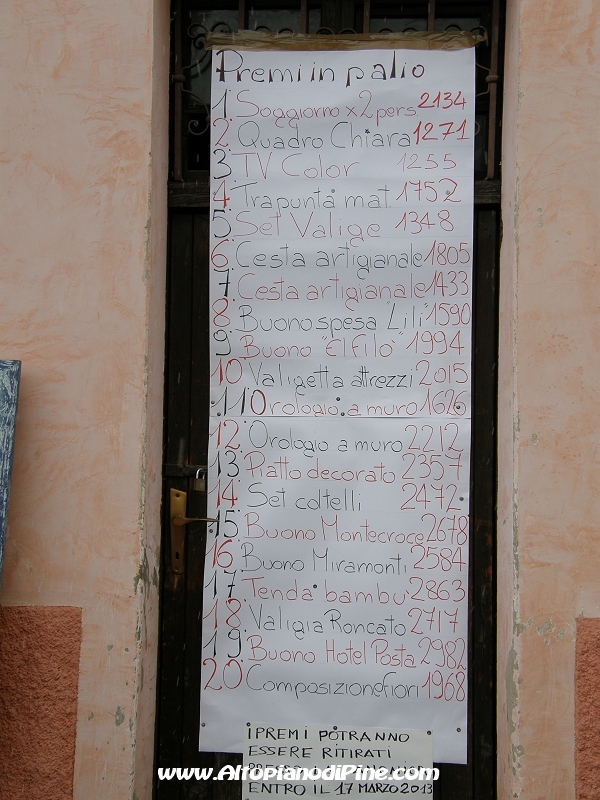 Premi in palio
1 Soggiorno x 2 pers. 2134
2 Quadro Chiara 1271
3 TV Color 1255
4 Trapunta mat. 1752
5 Set Valige 1348
6 Cesta artigianale 1805
7 Cesta artigianale 1433
8 Buono spesa "Lili" 1590
9 Buono "El filò" 1994
10 Valigetta attrezzi 2015
11 Orologio a muro 1626
12 Orologio a muro 2212
13 Piatto decorato 2357
14 Set coltelli 2472
15 Buono Montecroce 2678
16 Buono Miramonti 2584
17 Tenda bambù 2863
18 Valigia Roncato 2717
19 Buono Hotel Posta 2982
20 Composizione fiori 1968
I PREMI POTRANNO
ESSERE RITIRATI
www.AltopianodiPine.com
ENTRO IL 17 MARZO 2013